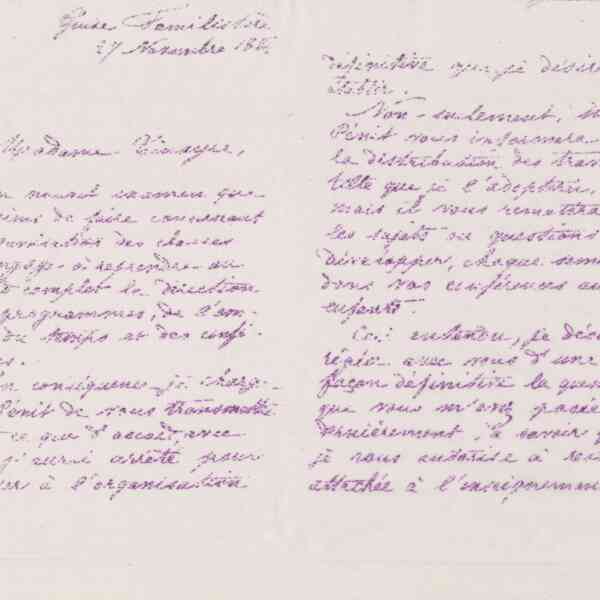 Guise Familistère
27 Novembre 188
Madame
nouvel examen que
de faire concernant
des classes
à reprendre au
complet la direction
programmes, de l'em-
du temps et des confé-
s.
conséquence je charge
Pénit de vous transmettre
ce que d'accord, avec
j'aurai arrêté pour
à l'organisation
définitive que je désire
établir.
Non-seulement,
Pénit vous informera
la distribution des
telle que je l'adopterai,
mais il vous remettra
les sujets ou questions
développer, chaque
dans vos conférences aux
enfants.
Ceci entendu, je
régler avec vous d'une
façon définitive la ques
que vous m'avez posée
dernièrement, à savoir
je vous autorise à
attachée à l'enseignemen